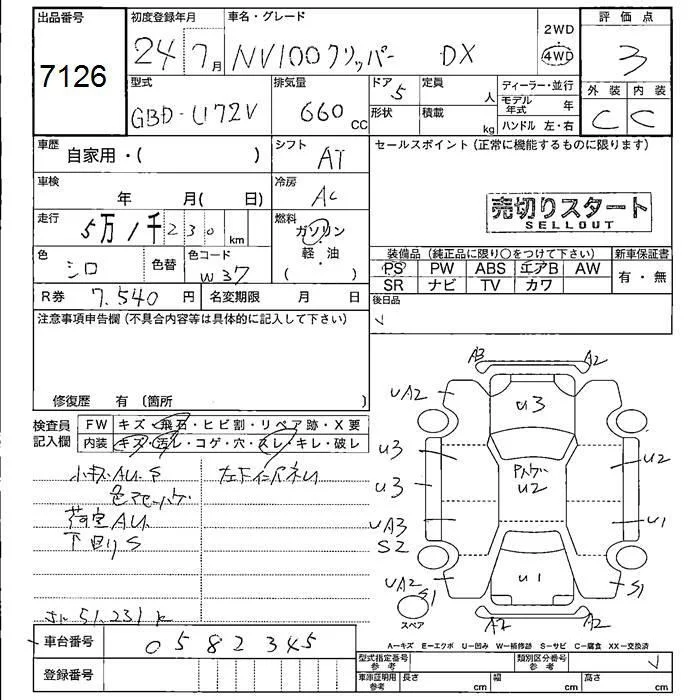 出品番号 初度登録年月 車名・グレード 2WD 評価点
7126 24 7月 NV100クリッパー DX 4WD 3
型式 排気量 ドア 定員 ディーラー・並行 外装 内装
GBD-U72V 660 CC 5 人 モデル年式 年 C C
形状 積載 kg ハンドル 左・右
車歴 自家用・( ) シフト AT セールスポイント (正常に機能するものに限ります)
車検 年 月( 日) 冷房 AC
売切りスタート
SELLOUT
走行 5万1千230 km 燃料 ガソリン・軽油 ( )
色 シロ 色替 色コード W37
装備品 (純正品に限り○をつけて下さい) 新車保証書
PS PW ABS エアB AW 有・無
SR ナビ TV カワ
R券 7.540 円 名変期限 月 日 後日品
注意事項申告欄 (不具合内容等は具体的に記入して下さい)
修復歴 有 (箇所 )
検査員記入欄 FW キズ・飛石・ヒビ割・リペア跡・X要
内装 キズ・汚レ・コゲ・穴・スレ・キレ・破レ
小キズAU.S
荷室AU
下回りS
51,231K
A3 A2
UA2 A2
U3
U3 U2
Pハゲ
U2
U3
UA3 U1
S2
UA2 S1 U1 S1
スペア A2 A2
A-キズ E-エクボ U-凹み W-補修跡 S-サビ C-腐食 XX-交換済
車台番号 0582345
型式指定番号 参考 類別区分番号 参考
登録番号 車庫証明用 参考 長さ cm 幅 cm 高さ cm